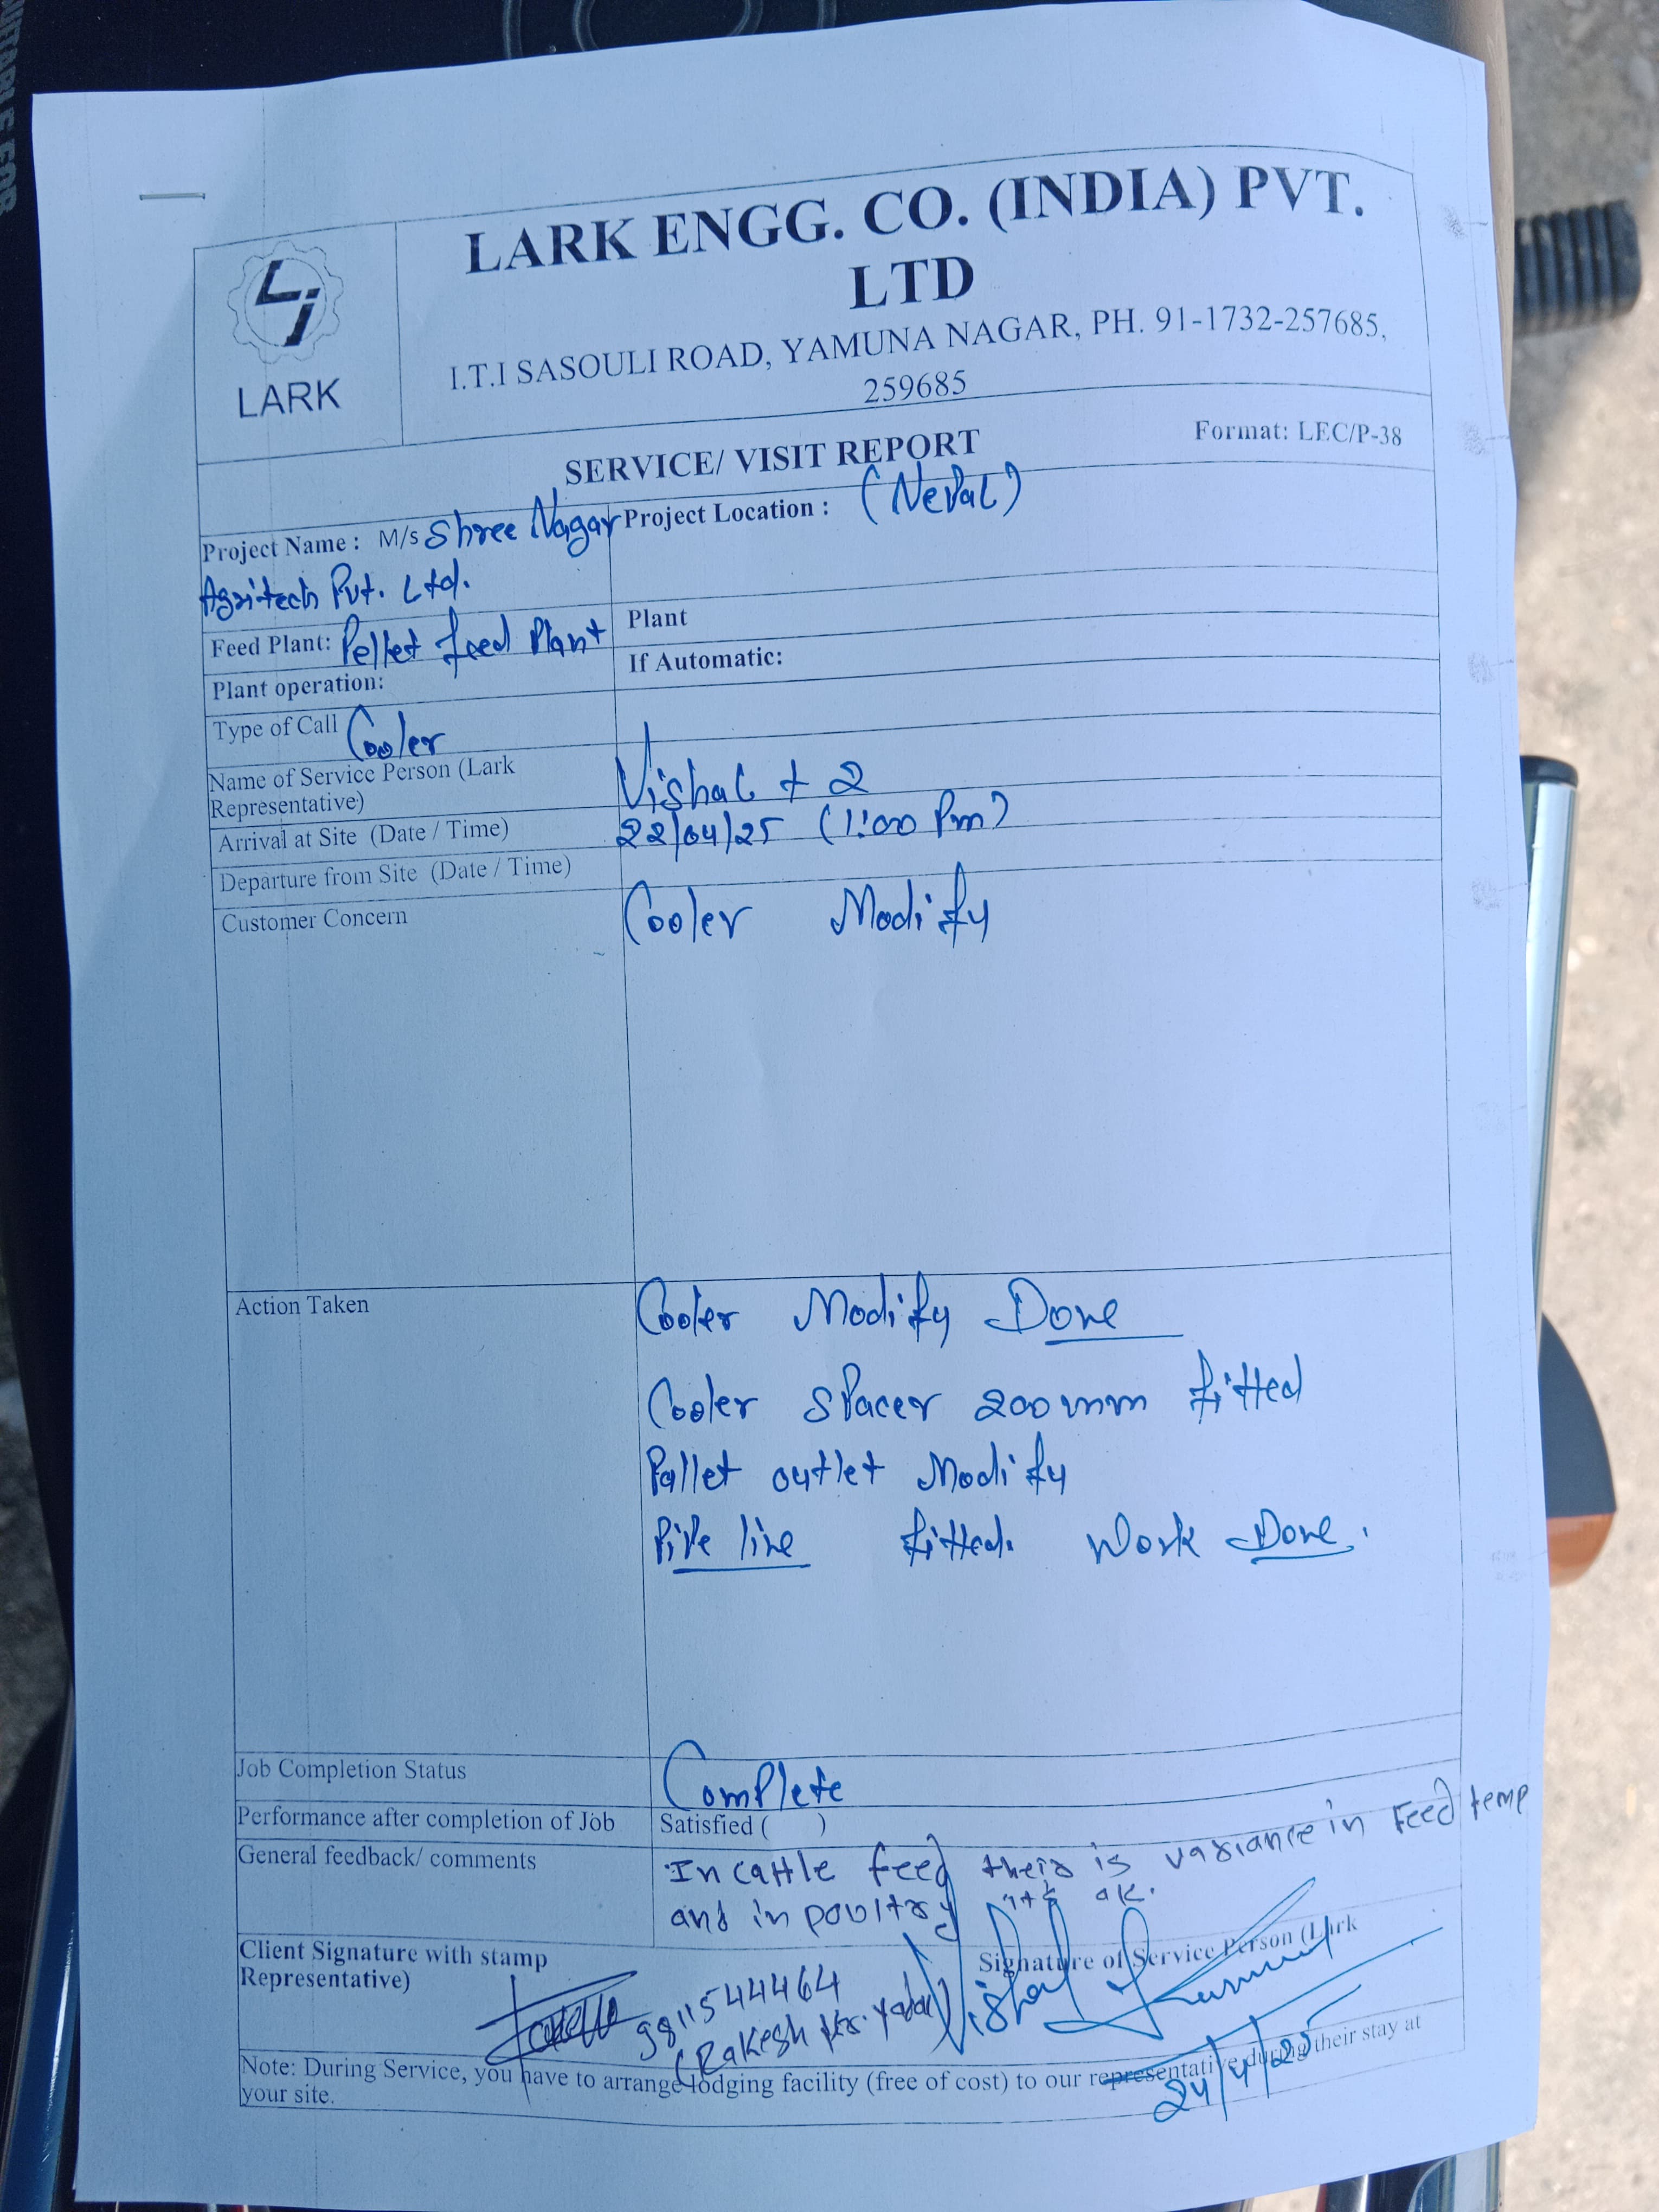 LARK ENGG. CO. (INDIA) PVT.
LTD
I.T.I SASOULI ROAD, YAMUNA NAGAR, PH. 91-1732-257685,
259685
LARK
SERVICE/ VISIT REPORT
Format: LEC/P-38
Project Name : M/s Shree Nagar
Agritech Pvt. Ltd.
Project Location : (NePal)
Feed Plant: Pellet feed Plant
Plant
Plant operation:
If Automatic:
Type of Call Cooler
Name of Service Person (Lark
Representative)
Vishal + 2
Arrival at Site (Date / Time) 22/04/25 (1:00 Pm)
Departure from Site (Date / Time)
Customer Concern Cooler Modify
Action Taken Cooler Modify Done
Cooler SPacer 200mm fitted
Pallet outlet Modify
PiPe line fitted. Work Done.
Job Completion Status ComPlete
Performance after completion of Job Satisfied ( )
General feedback/ comments In cattle feed theis is variance in Feed temp
and in poultry it's ok.
Client Signature with stamp
Signature of Service Person (Lark
Representative)
9811544464
(Rakesh Kr. Yadav)
Vishal Kumar
24/4/25
Note: During Service, you have to arrange lodging facility (free of cost) to our representative during their stay at
your site.